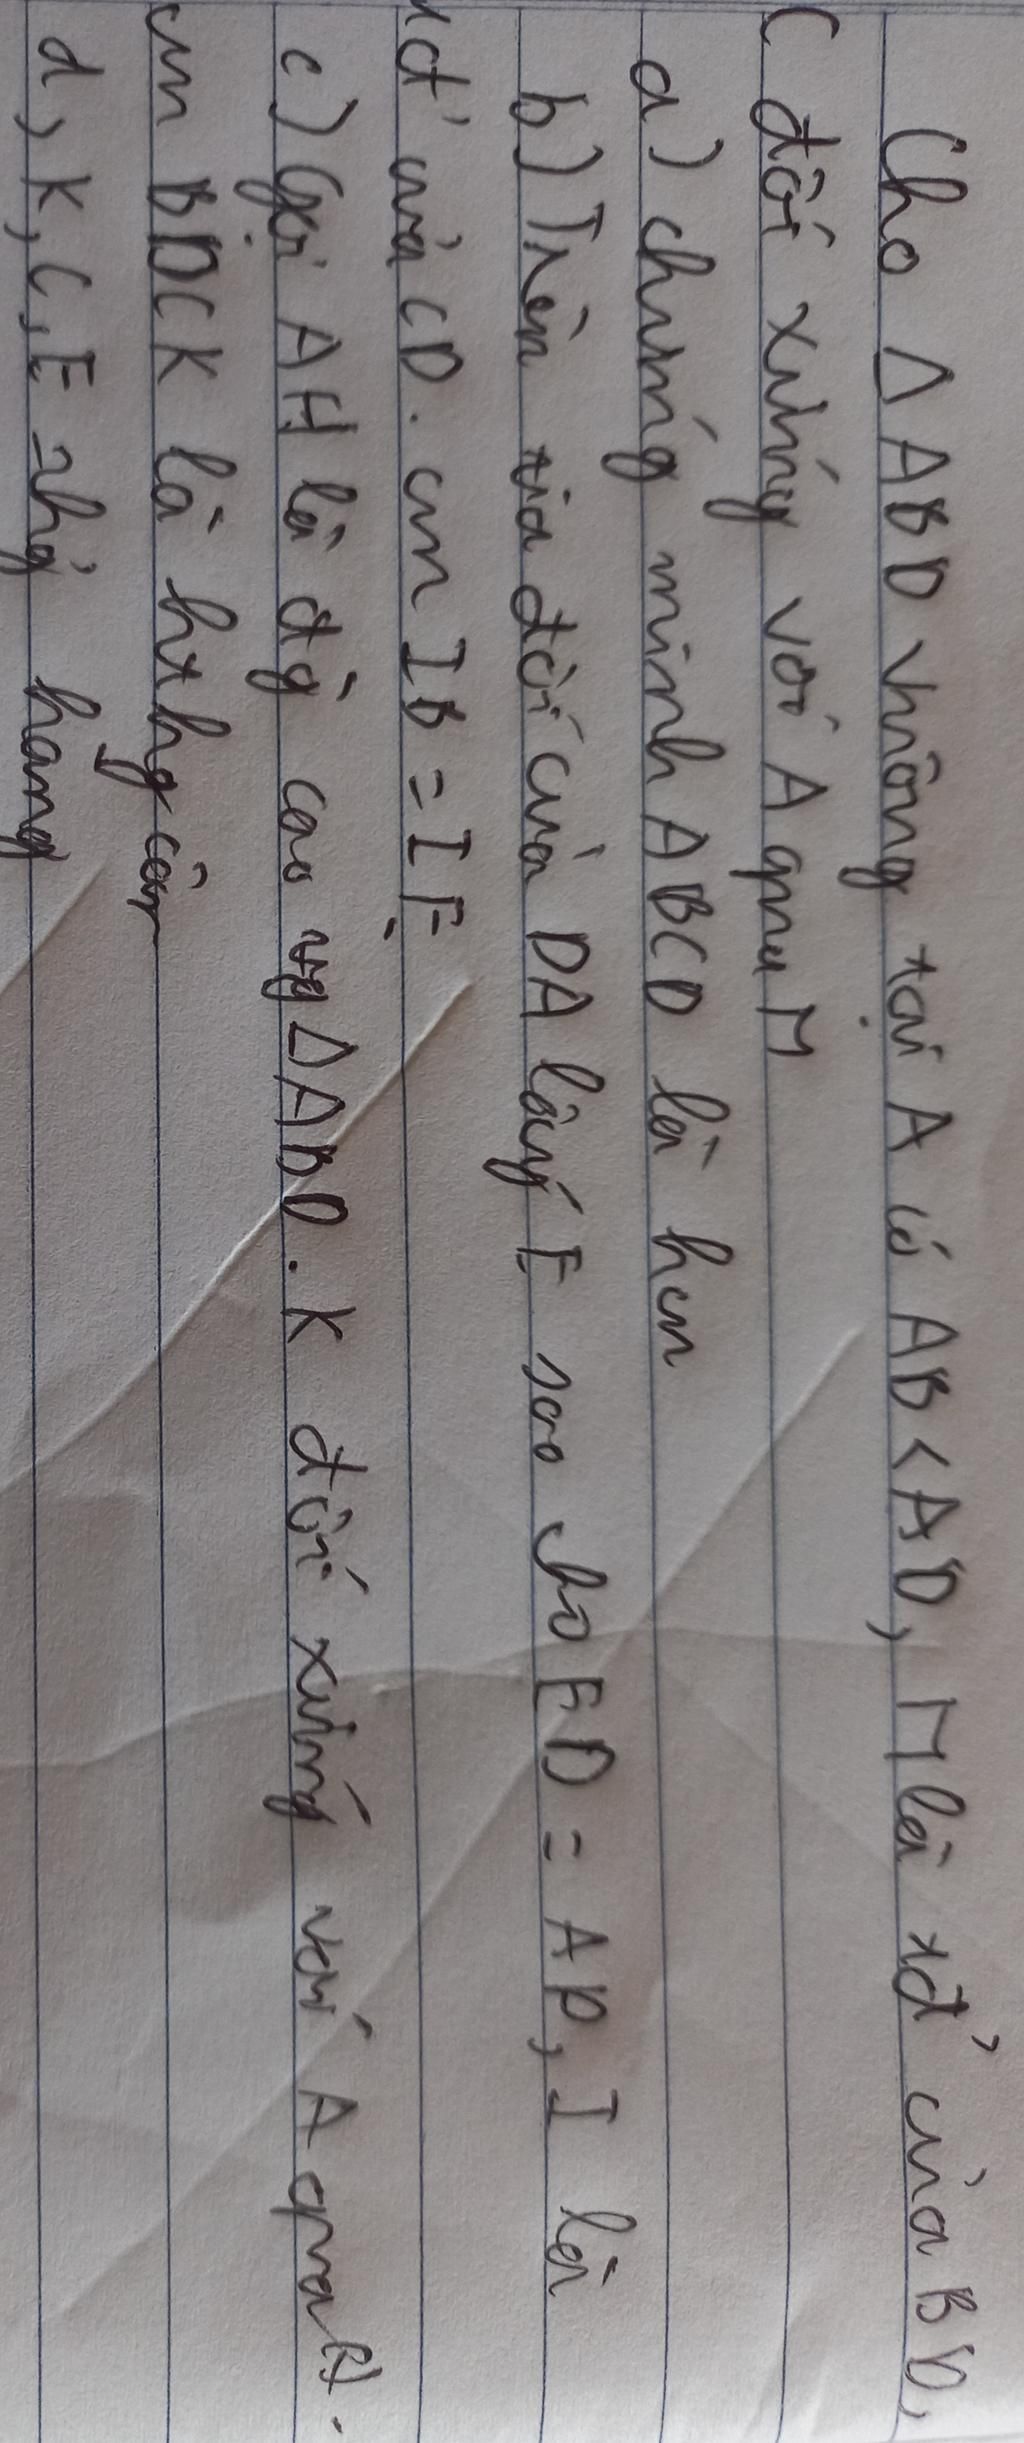 Cho Δ ABD vuông tại A có AB < AD, M là tđ' của BD,
C đối xứng với A qua M
a) chứng minh ABCD là hcn
b) Trên tia đối của DA lấy E sao cho ED = AD, I là
tđ' của CD. cm IB = IE
c) Gọi AH là đg cao ΔABD. K đối xứng với A qua H.
cm BDCK là hthg cân
d, K, C, E thg hàng